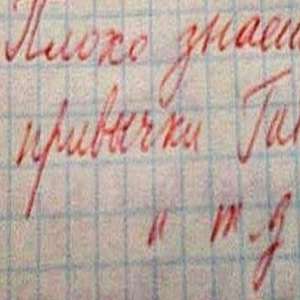 Плохо знаеш
привычки Ган
и т.д